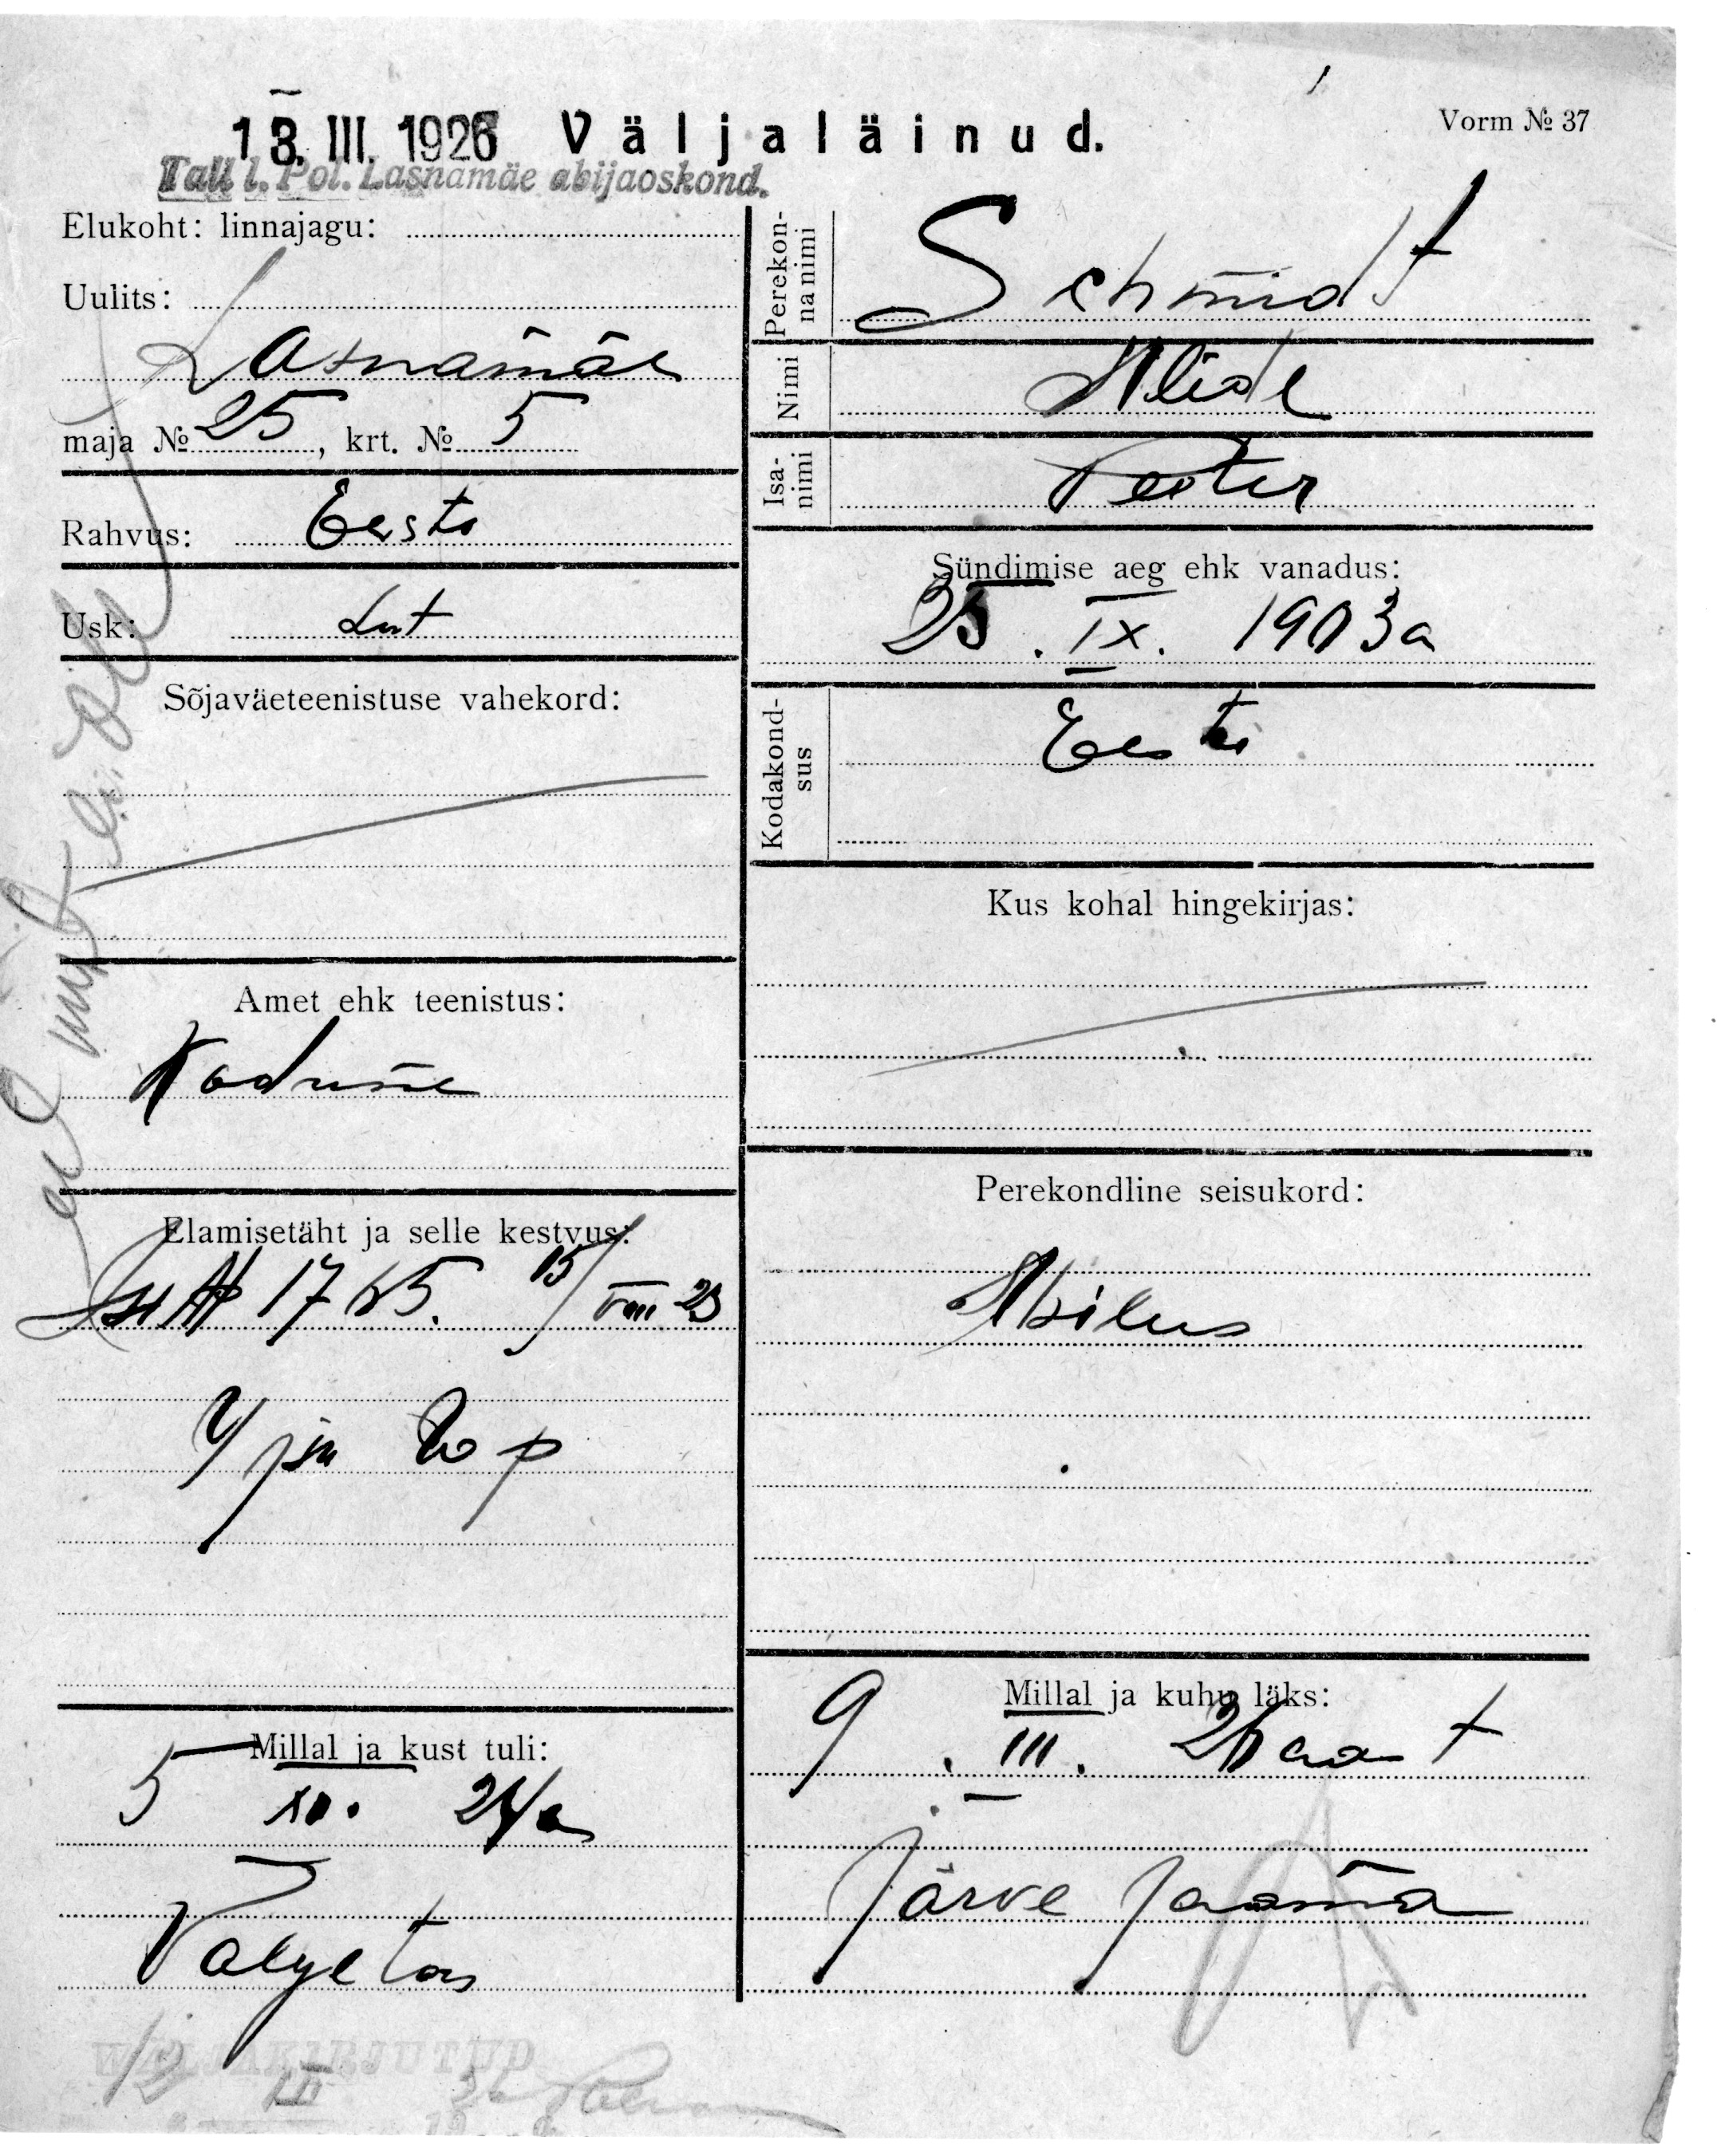 13. III. 1926 Väljaläinud.
Vorm № 37
Tall l. Pol. Lasnamäe abijaoskond.
Elukoht: linnajagu:
Uulits:
Lasnamäe
maja № 25, krt. № 5
Rahvus: Eesti
Usk: Lut
Sõjaväeteenistuse vahekord:
Amet ehk teenistus:
Kodune
Elamisetäht ja selle kestvus:
1765. 15/VIII 23
Millal ja kust tuli:
5 XII. 24 a
Valgetas
Perekonna nimi
Schmidt
Nimi
Alide
Isa-nimi
Peeter
Sündimise aeg ehk vanadus:
25. IX. 1903 a
Kodakondsus
Eesti
Kus kohal hingekirjas:
Perekondline seisukord:
Abilus
Millal ja kuhu läks:
9. III. 26 aa t
Järve Jaama
WÄLJAKIRJUTUD
12 III